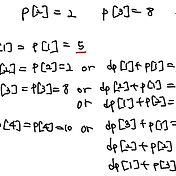 P[2] = 2 P[3] = 8
[1] = P[1] = 5
[2] = P[2] = 2 or dp[1] + P[1] =
[3] = P[3] = 8 or dp[2] + P[1] =
or dp[1] + P[2] =
P[4] = P[4] = 10 or dp[3] + P[1] =
dp[2] + P[2] =
dp[1] + P[3] =